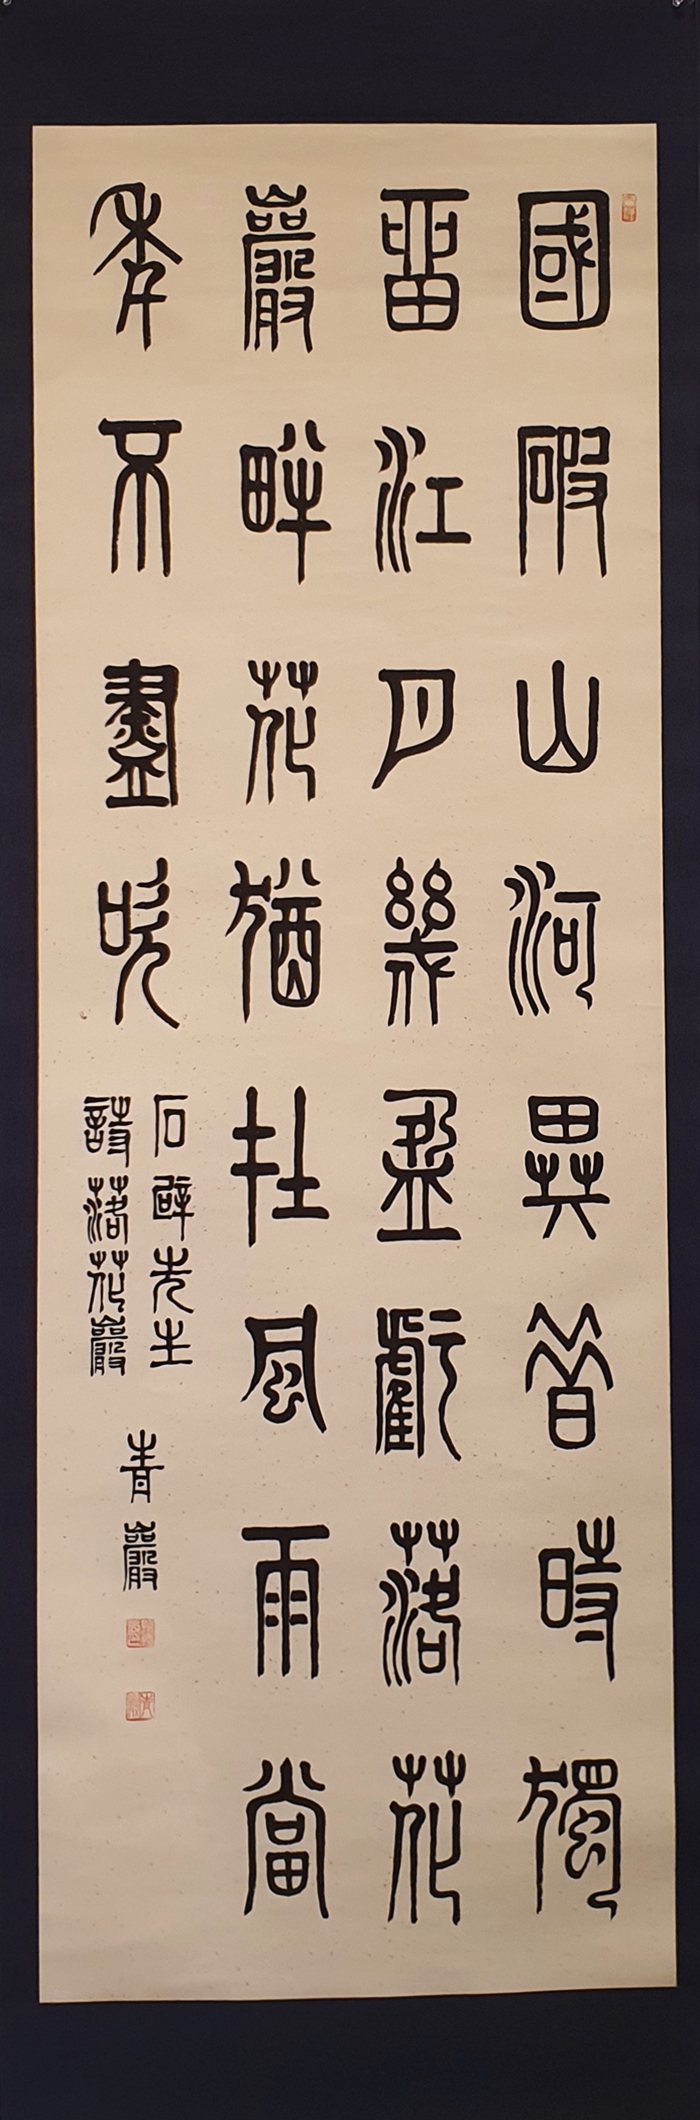 國破山河異昔時獨
留江月幾盈虧落花
巖畔花猶在風雨當
年不盡吹
石壁先生
詩落花巖
青巖